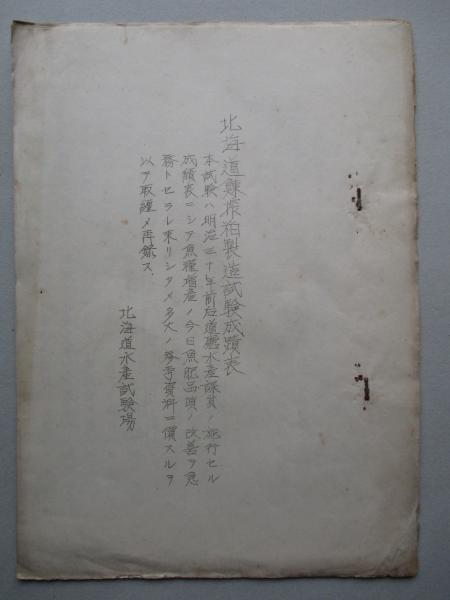 北海道鰊搾粕製造試験成蹟表
本試験ハ明治三十年前后道廳水産課其ノ施行セル
成績表ニシテ魚糧増産ノ今日魚肥品質ノ改善ヲ急
務トセラレ来リシタメ多大ノ参考資料ニ價スルヲ
以テ取纒メ再録ス
北海道水産試験場